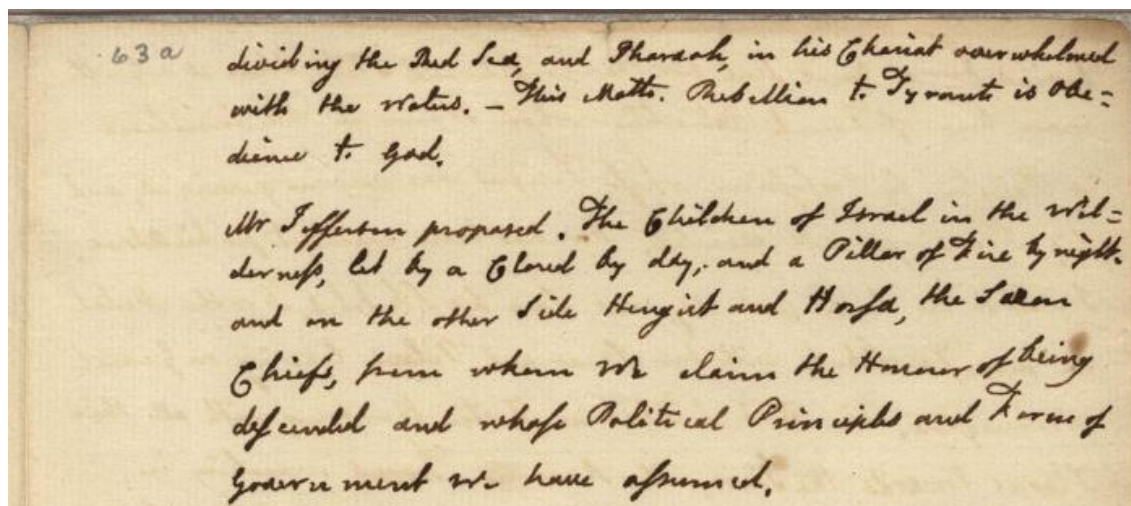 63a
dividing the Red Sea, and Pharaoh, in his Chariot overwhelmed
with the Waters. — This Motto. Rebellion to Tyrants is Obe=
dience to God.
Mr Jefferson proposed. The Children of Israel in the Wil=
derness, led by a Cloud by day, and a Pillar of Fire by night.
and on the other Side Hengist and Horsa, the Saxon
Chiefs, from whom We claim the Honour of being
descended and whose Political Principles and Form of
Government We have assumed.